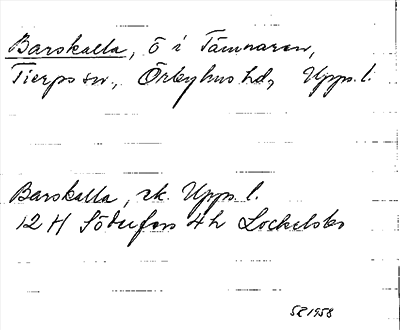 Barskalla, ö i Tämnaren,
Tierps sn., Örbyhus hd, Upps. l.
Barskalla, ek. Upps. l.
12 H Söderfors 4 h Lockelsbo
SE 1958